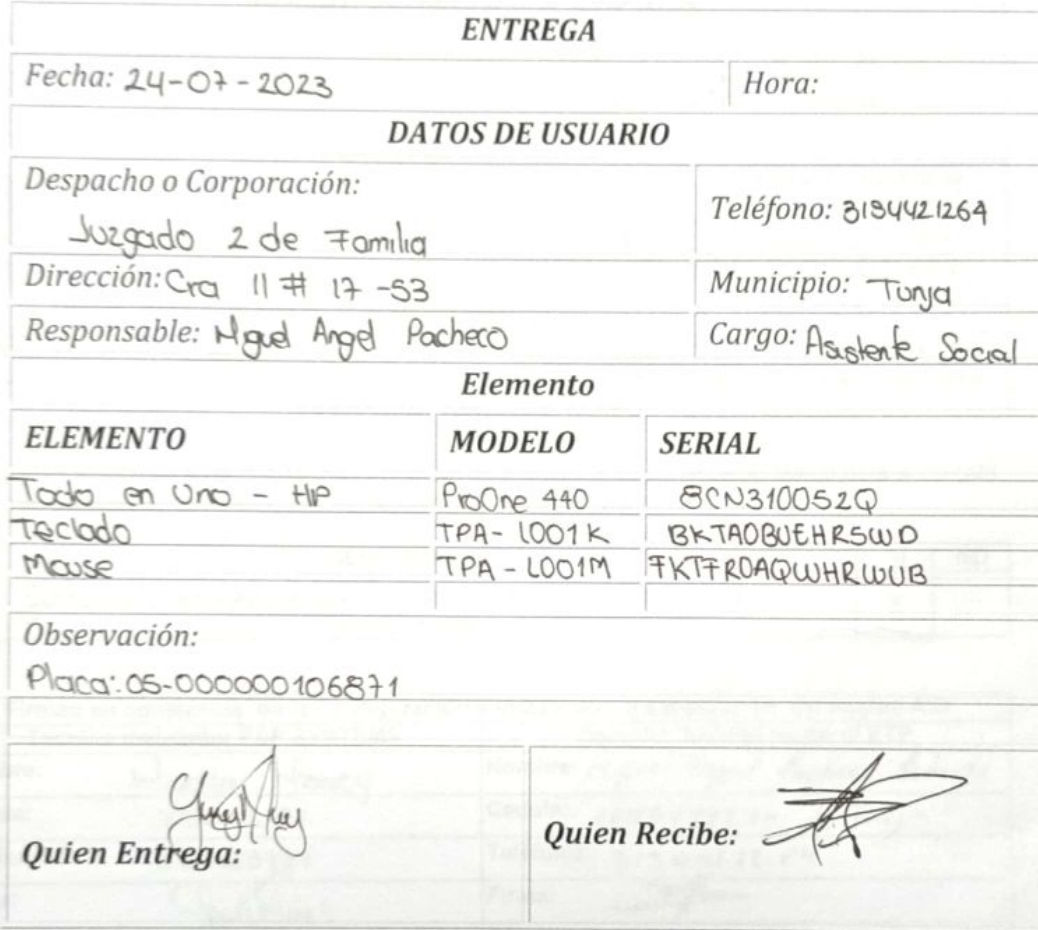 ENTREGA
Fecha: 24-07-2023 Hora:
DATOS DE USUARIO
Despacho o Corporación:
Juzgado 2 de Familia
Teléfono: 3194421264
Dirección: Cra 11 # 17-53 Municipio: Tunja
Responsable: Miguel Angel Pacheco Cargo: Asistente Social
Elemento
ELEMENTO MODELO SERIAL
Todo en Uno - HP ProOne 440 8CN310052Q
Teclado TPA-L001K BKTAOBUEHRSWD
Mouse TPA-L001M FKTFR0AQWHRWUB
Observación:
Placa: 05-000000106871
Quien Entrega:
Quien Recibe: